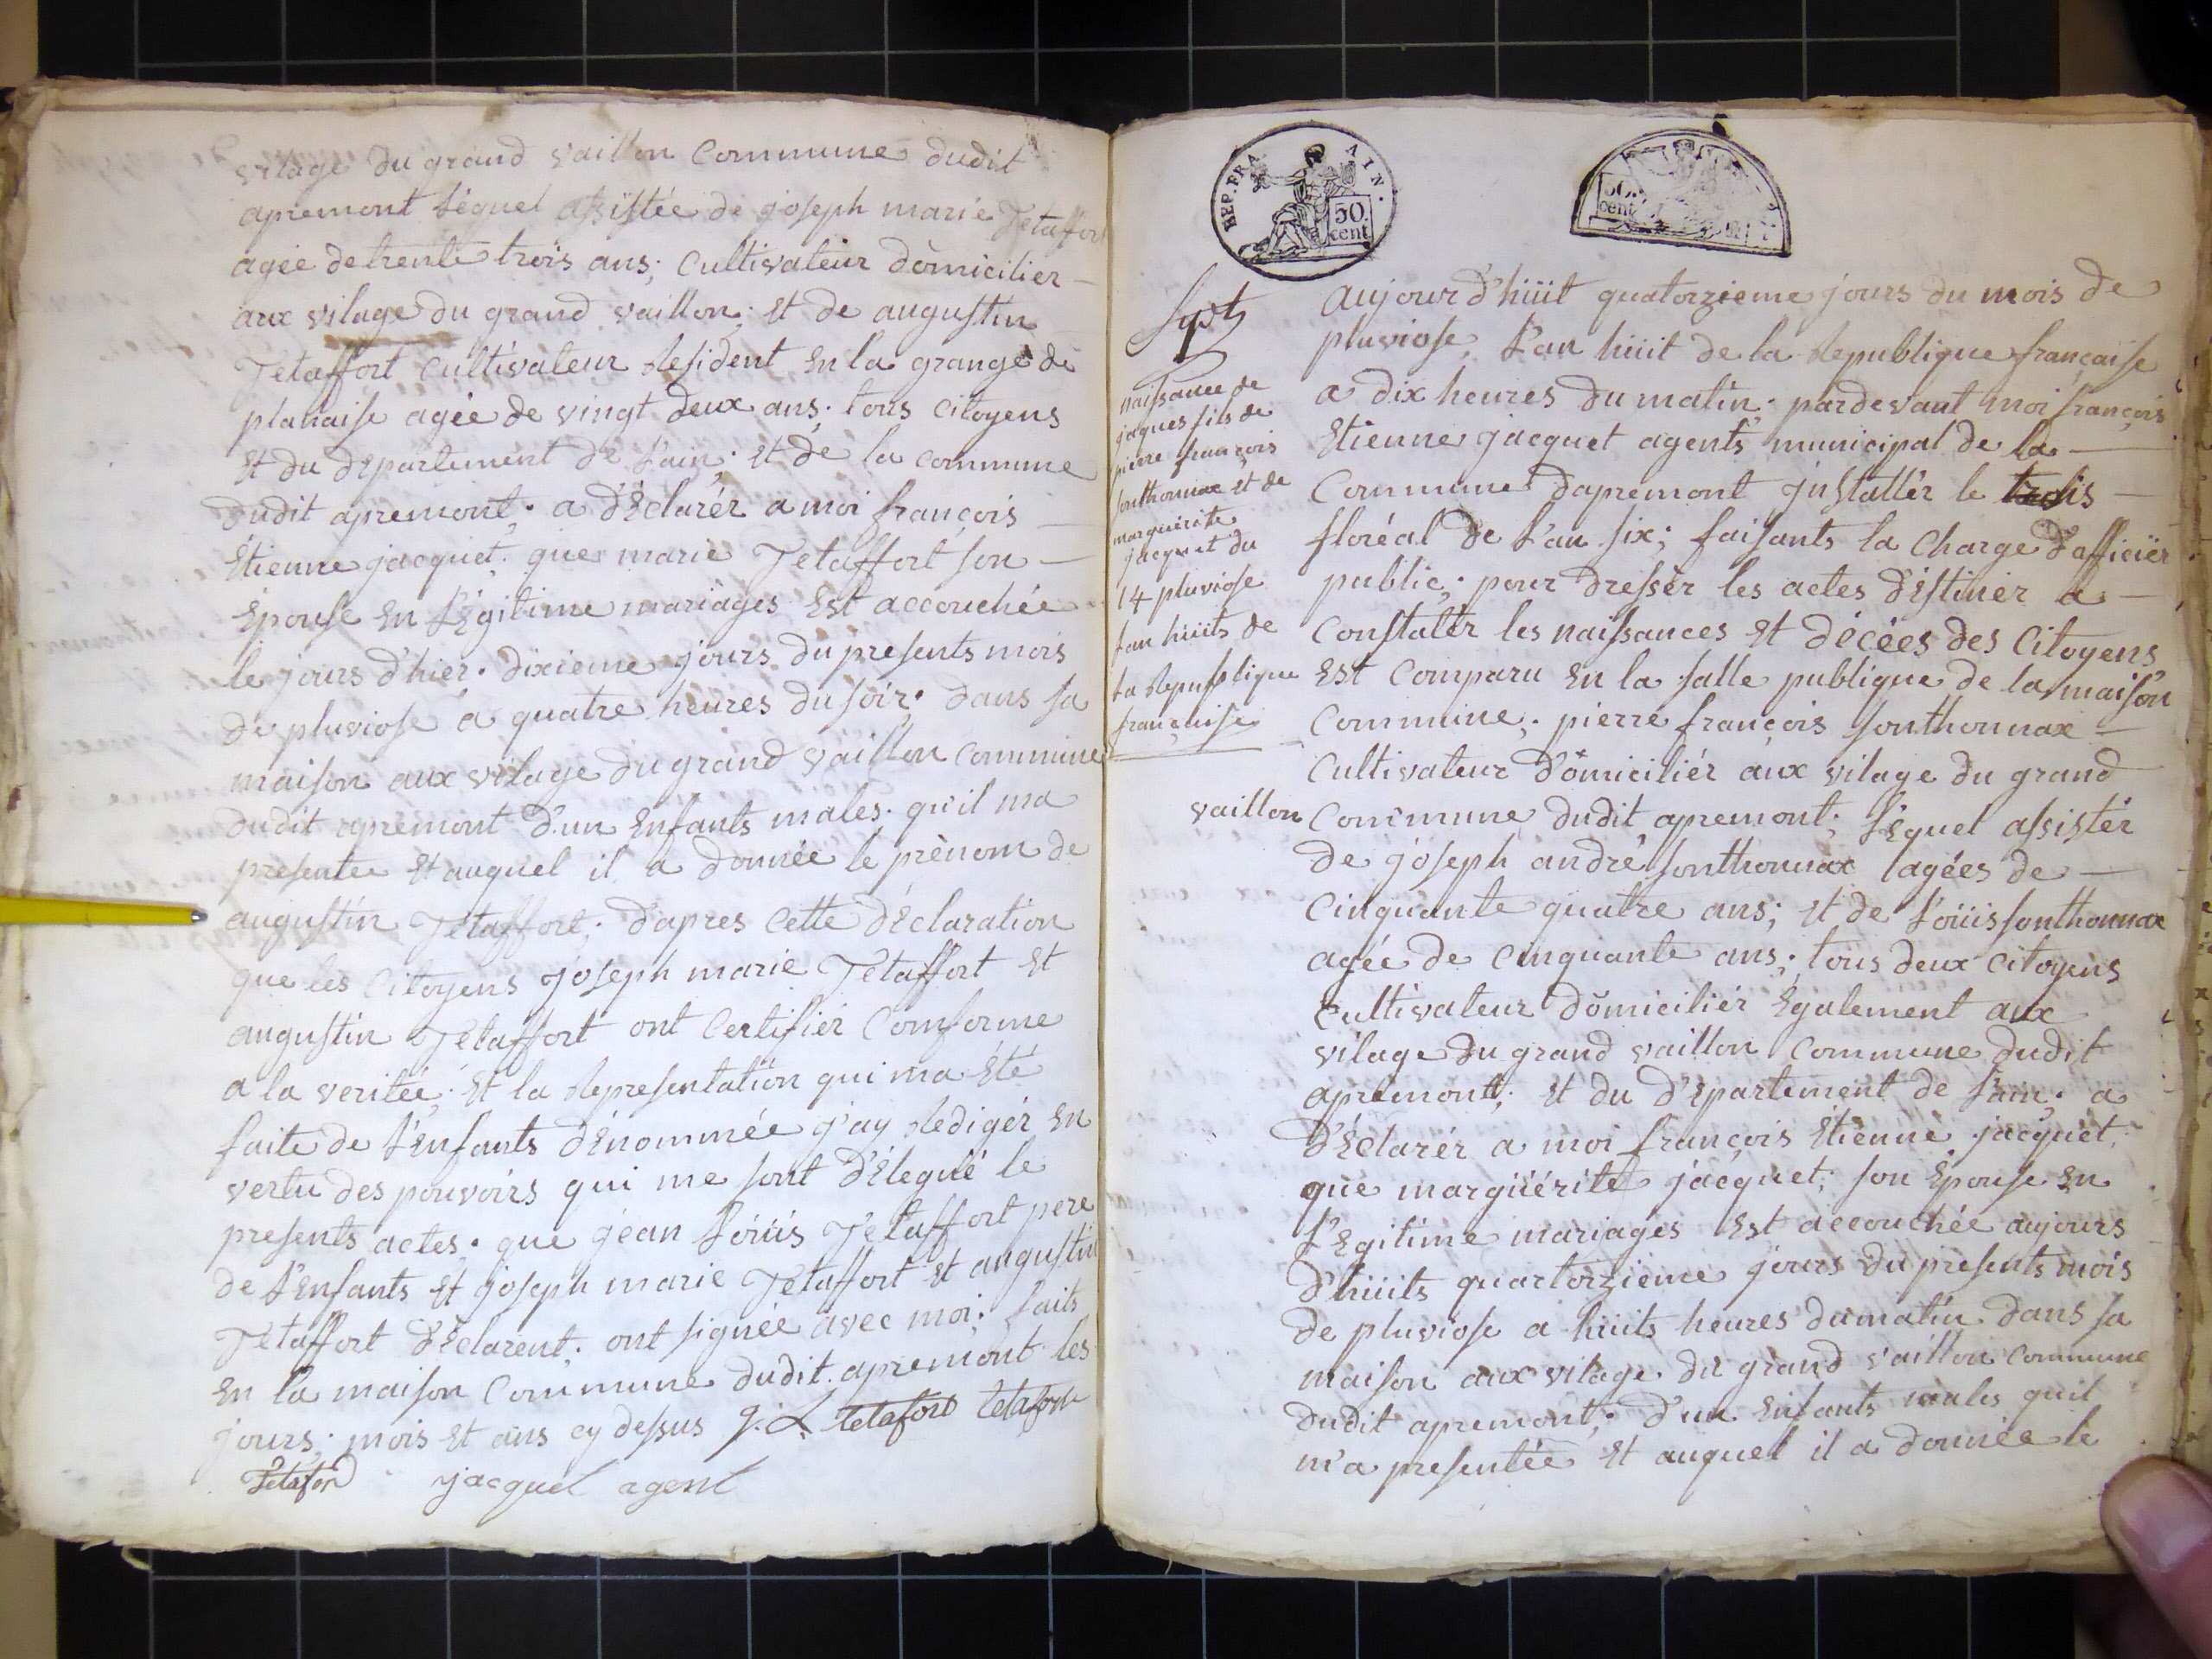 vilage du grand vaillon Commune dudit
apremont léquel assistée de joseph marie Jetaffort
agée de trente trois ans; Cultivateur domicilier
aux vilage du grand vaillon; et de augustin
Jetaffort cultivateur Resident en la grange de
planaise agée de vingt deux ans; tous citoyens
et du departement de l'ain; et de la commune
dudit apremont; a déclarér a moi françois
Etienne jacquet; que marie Jetaffort son
épouse en légitime mariages est accouchée
le jours d'hier dixieme jours du presents mois
de pluviose a quatre heures du soir; dans sa
maison aux vilage du grand vaillon commune
dudit apremont d'un Enfants males qu'il ma
presentee et auquel il a donnée le prènom de
augustin Jetaffort; d'apres cette déclaration
que les citoyens joseph marie Jetaffort et
augustin Jetaffort ont certifier Comforme
a la veritée; et la Representation qui ma été
faite de l'enfants dénommée j'ay Redigér en
vertu des pouvoirs qui me sont délegué le
presents actes; que jean loüis Jetaffort pere
de l'enfants et joseph marie Jetaffort et augustin
Jetaffort déclarent; ont signée avec moi; faits
en la maison Commune dudit apremont les
jours; mois et ans cy dessus J. L. tetafort tetafort
Tetafor jacquet agent
REP. FRA AIN.
50. cent
50. cent
naissance de
jaques fils de
pierre françois
sonthonnax et de
marguérite
jacquet du
14 pluviose
l'an hüits de
la Republique
française
aujourd'hüit quatorzieme jours du mois de
pluviose, l'an hüit de la Republique française
a dix heures du matin; pardevant moi françois
Etienne jacquet agents municipal de la
Commune dapremont installér le trois
floréal de l'an six; faisants la Charge d'afficiër
public; pour dressér les actes déstinér a
Constatér les naissances et décées des Citoyens
est Comparu en la salle publique de la maison
Commune; pierre françois sonthonnax
Cultivateur domiciliér aux vilage du grand
vaillon Commune dudit apremont; léquel assistér
de joseph andré sonthonnax agées de
Cinquante quatre ans; et de loüis sonthonnax
agée de cinquante ans; tous deux citoyens
cultivateur domiciliér également aux
vilage du grand vaillon commune dudit
apremont; et du département de l'ain; a
déclarér a moi françois étienne jacquet;
que margüérite jacquet; son épouse en
légitime mariages est accouchée aujours
d'hüits quartorzieme jours du presents mois
de pluviose a hüits heures du matin dans sa
maison aux vilage du grand vaillon commune
dudit apremont; d'un enfants males quil
m'a presentée et auquel il a donnée le